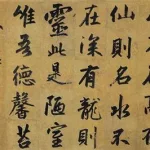 仙則名水不
在深有龍則
靈此是陋室
唯吾德馨苔